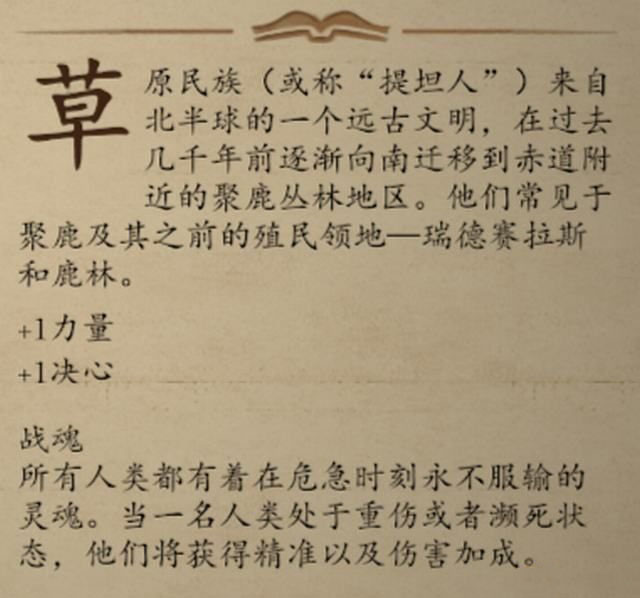 草原民族（或称“提坦人”）来自
北半球的一个远古文明，在过去
几千年前逐渐向南迁移到赤道附
近的聚鹿丛林地区。他们常见于
聚鹿及其之前的殖民领地—瑞德赛拉斯
和鹿林。
+1力量
+1决心
战魂
所有人类都有着在危急时刻永不服输的
灵魂。当一名人类处于重伤或者濒死状
态，他们将获得精准以及伤害加成。